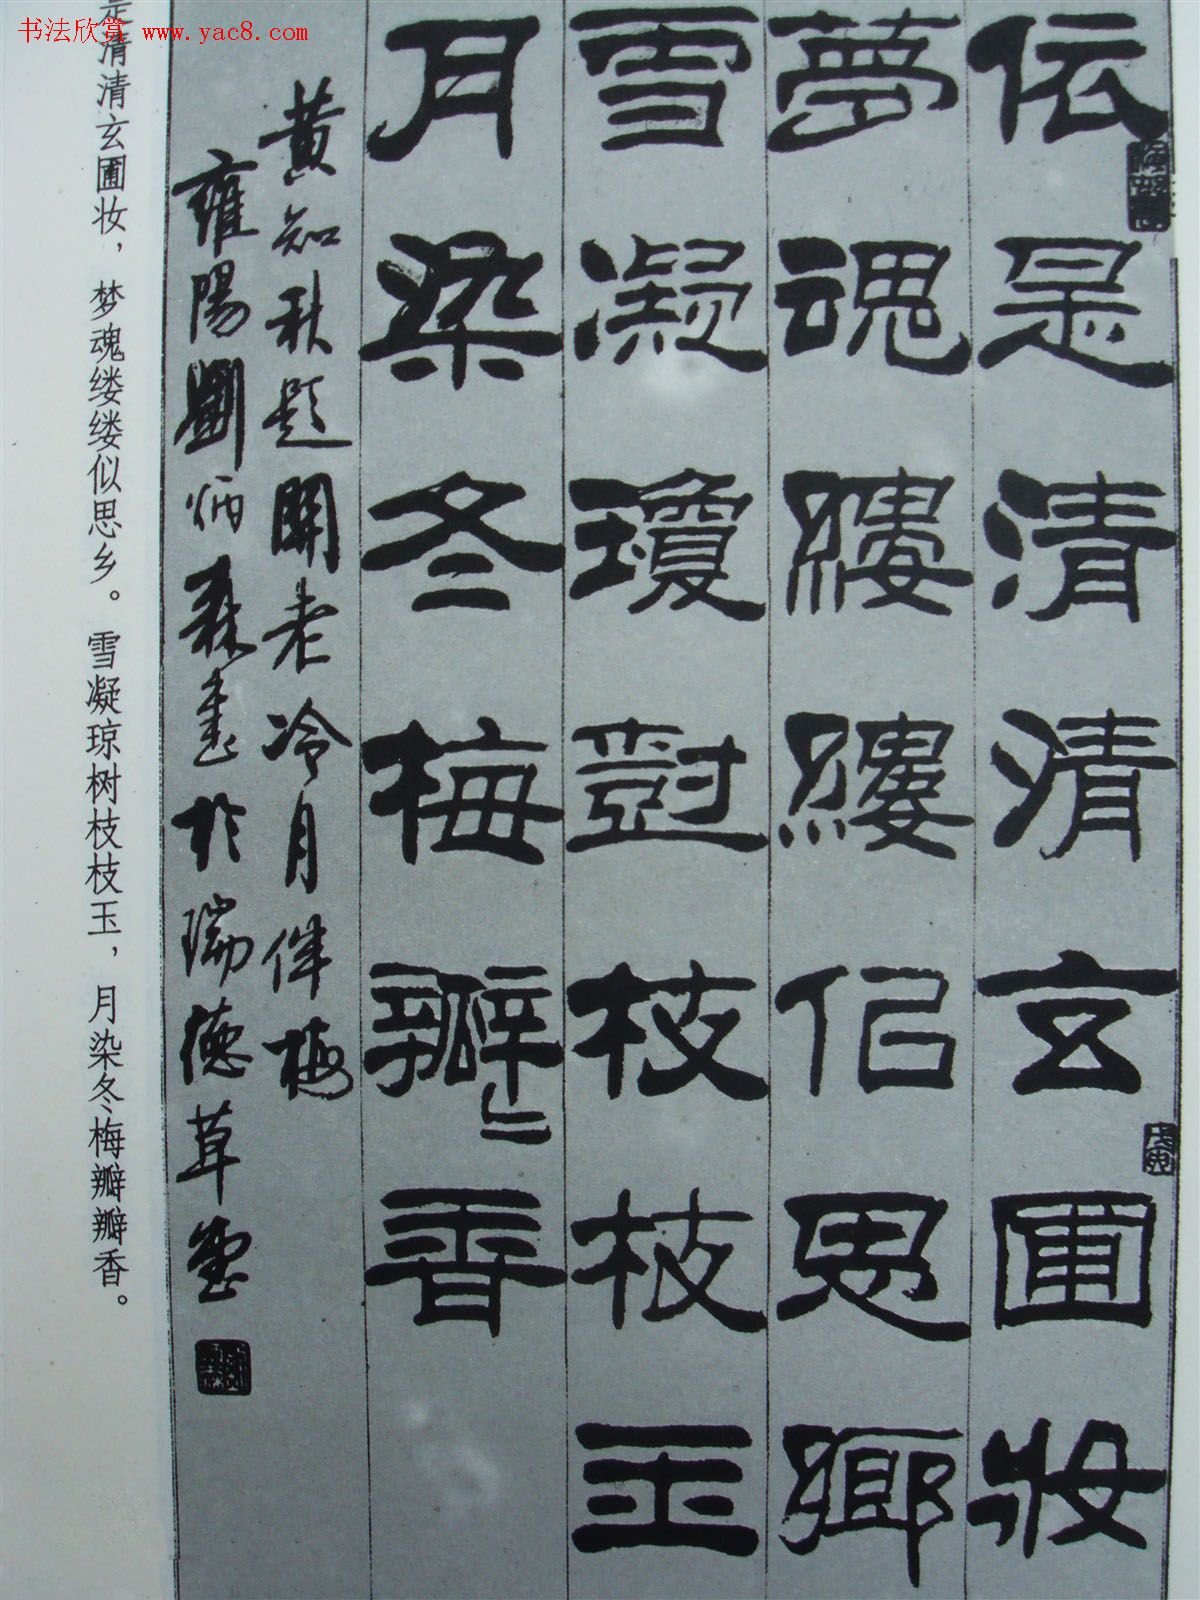 书法欣赏 www.yac8.com
依是清清玄圃妝
夢魂縷縷佀思鄉
雪凝瓊尌枝枝玉
月染冬梅瓣〻香
黃知秋題關老冷月伴梅
雍陽劉炳森書於瑞德草堂
是清清玄圃妆，梦魂缕缕似思乡。雪凝琼树枝枝玉，月染冬梅瓣瓣香。